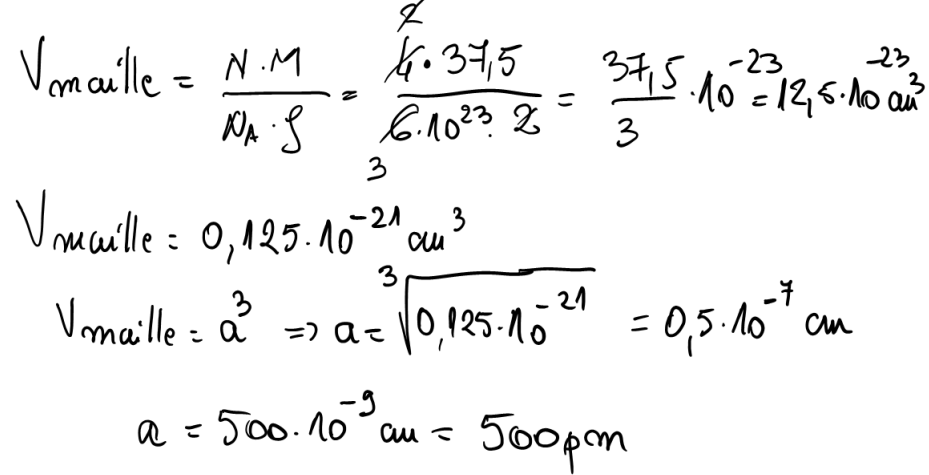 V maille = N·M / N_A·ρ = 4·37,5 / 6·10^23·2 = 37,5/3 ·10^-23 = 12,5·10^-23 cm^3
V maille = 0,125·10^-21 cm^3
V maille = a^3 => a = ∛0,125·10^-21 = 0,5·10^-7 cm
a = 500·10^-9 cm = 500pm